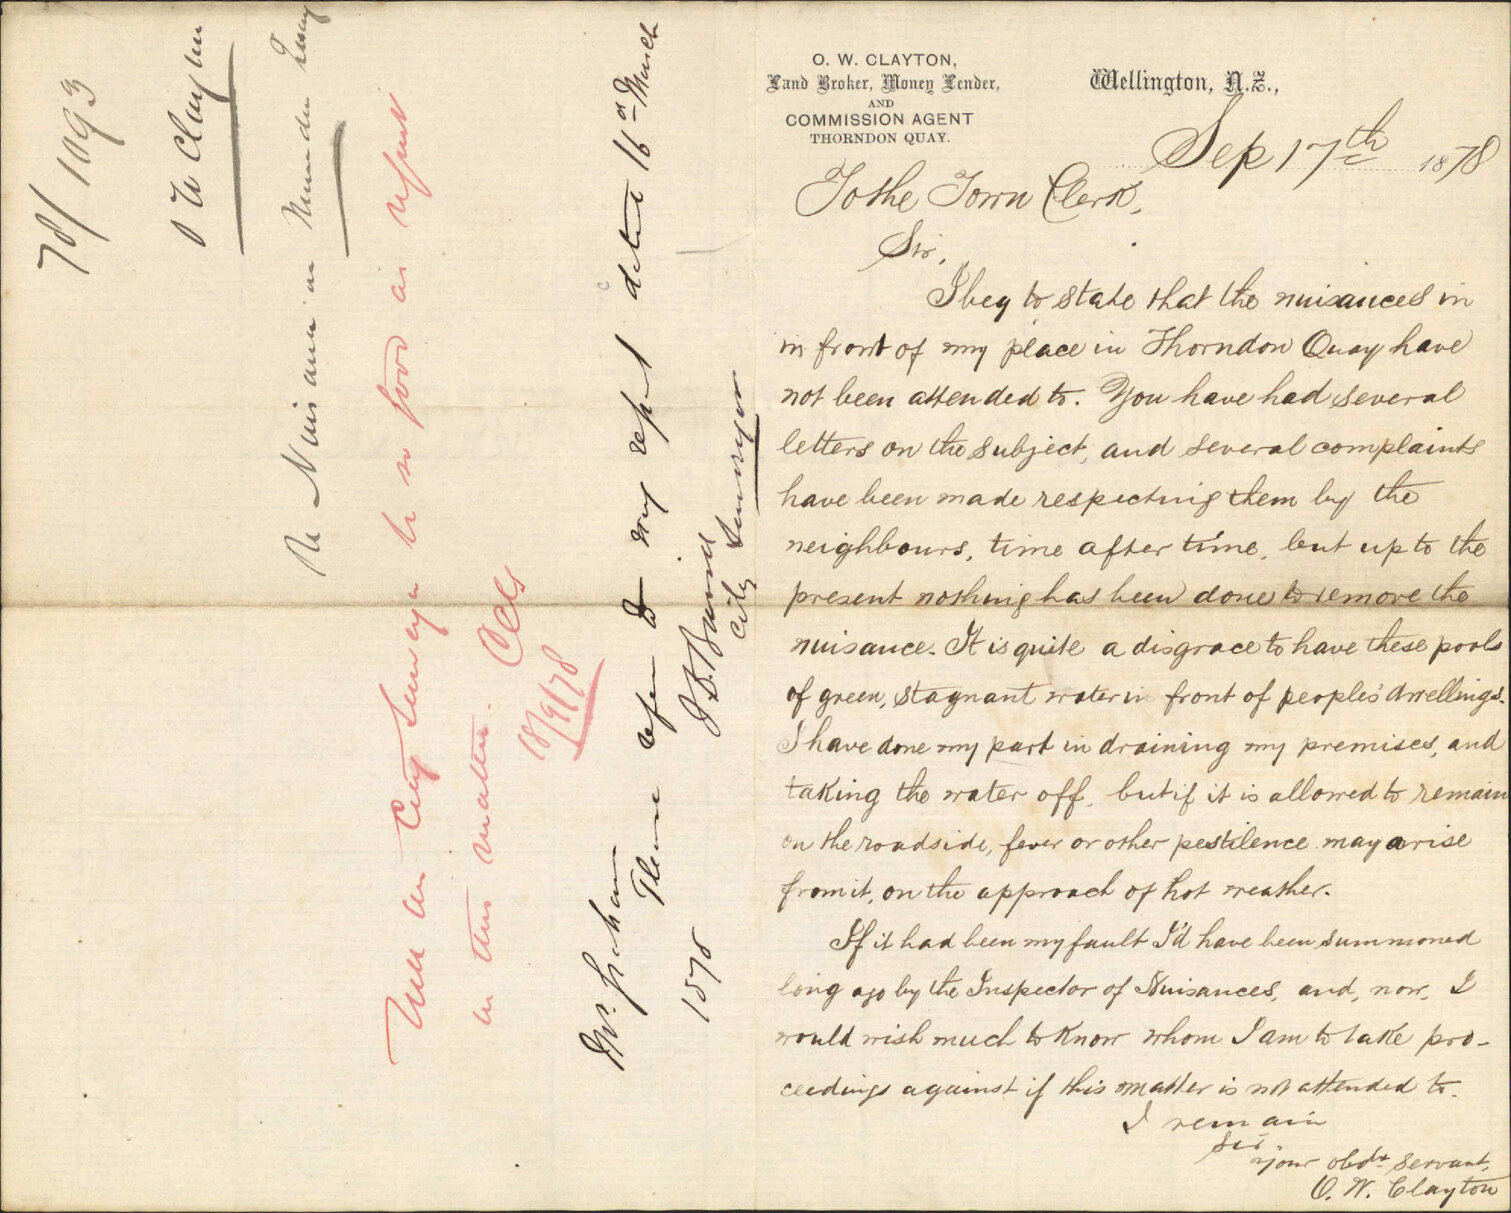 O. W. CLAYTON,
Land Broker, Money Lender,
AND
COMMISSION AGENT
THORNDON QUAY.
Wellington, N.Z.,
Sep 17th 1878
To the Town Clerk,
Sir,
I beg to state that the nuisances in
in front of my place in Thorndon Quay have
not been attended to. You have had several
letters on the subject, and several complaints
have been made respecting them by the
neighbours, time after time, but up to the
present nothing has been done to remove the
nuisance. It is quite a disgrace to have these pools
of green, stagnant water in front of people's dwellings.
I have done my part in draining my premises, and
taking the water off, but if it is allowed to remain
on the roadside, fever or other pestilence may arise
from it, on the approach of hot weather.
If it had been my fault I'd have been summoned
long ago by the Inspector of Nuisances, and, now, I
would wish much to know whom I am to take pro-
ceedings against if this matter is not attended to.
I remain
Sir
Your obdt servant,
O. W. Clayton
78/1093
O W Clayton
Re Nuisance in
City Surveyor to so good as report
in this matter.
18/9/78
Mr.
Please refer to my report dated 16th March
1878
City Surveyor